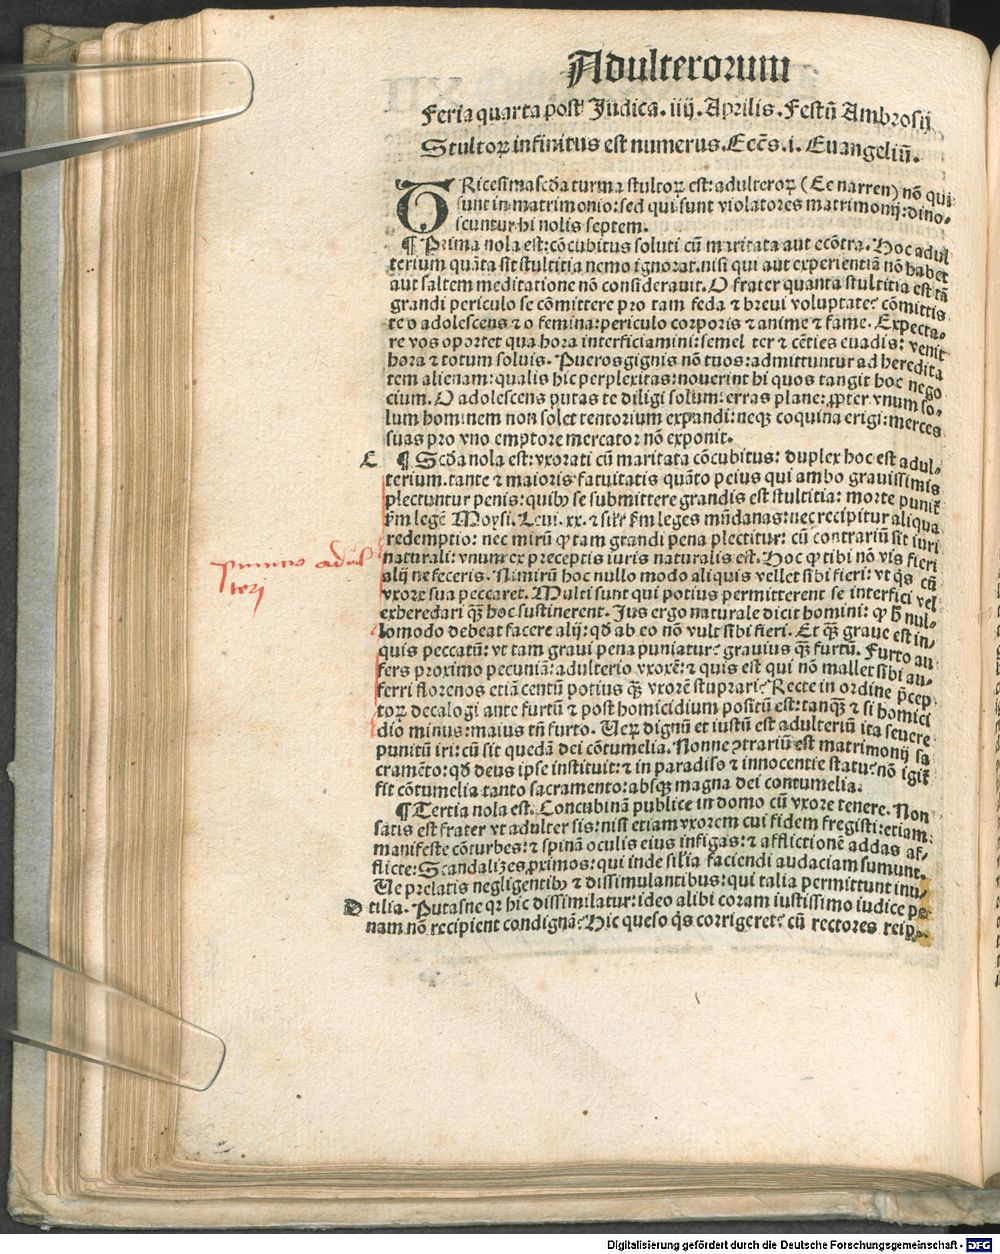 Adulterorum
Feria quarta post Judica. iiij. Aprilis. Festū Ambrosij
Stultoꝝ infinitus est numerus. Eccēs. i. Euangeliū.
TRicesimascđa turma stultoꝝ est: adulteroꝝ (Ee narren) nō qui
sunt in matrimonio: sed qui sunt violatores matrimonij: dino-
scuntur hi nolis septem.
¶ Prima nola est: cōcubitus soluti cū maritata aut ecōtra. Hoc adul
terium quāta sit stultitia nemo ignorat. nisi qui aut experientiā nō habet
aut saltem meditatione nō considerauit. O frater quanta stultitia est tā
grandi periculo se cōmittere pro tam feda ⁊ breui voluptate? cōmittis
te o adolescens ⁊ o femina: periculo corporis ⁊ anime ⁊ fame. Expecta-
re vos oportet qua hora interficiamini: semel ter ⁊ cēties euadis: venit
hora ⁊ totum soluis. Pueros gignis nō tuos: admittuntur ad heredita
tem alienam: qualis hic perplexitas: nouerint hi quos tangit hoc nego
cium. O adolescens putas te diligi solum: erras plane: ꝓpter vnum so-
lum hominem non solet tentorium expandi: neqꝫ coquina erigi: merces
suas pro vno emptore mercator nō exponit.
C ¶ Scđa nola est: vxorati cū maritata cōcubitus: duplex hoc est adul-
terium. tante ⁊ maioris fatuitatis quāto peius qui ambo grauissimis
plectuntur penis: quibꝰ se submittere grandis est stultitia: morte punit̃
ẜm legē Moysi. Leui. xx. ⁊ sil̃r ẜm leges mūdanas: nec recipitur aliqua
redemptio: nec mirū ꝙ tam grandi pena plectitur: cū contrariū sit iuri
naturali: vnum ex preceptis iuris naturalis est. Hoc ꝙ tibi nō vis fieri
alij ne feceris. Nimirū hoc nullo modo aliquis vellet sibi fieri: vt q̄s cū
vxore sua peccaret. Multi sunt qui potius permitterent se interfici vel
exheredari q̄ꝫ hoc sustinerent. Jus ergo naturale dicit homini: ꝙ ħ nul-
lomodo debeat facere alij: qđ ab eo nō vult sibi fieri. Et q̄ꝫ graue est in-
quis peccatū: vt tam graui pena puniatur? grauius q̄ꝫ furtū. Furto au
fers proximo pecuniā: adulterio vxorē: ⁊ quis est qui nō mallet sibi au-
ferri florenos etiā centū potius q̄ꝫ vxorē stuprari? Recte in ordine p̄cep
toꝝ decalogi ante furtū ⁊ post homicidium positū est: tanqꝫ ⁊ si homici
dio minus: maius tñ furto. Ueꝝ dignū et iustū est adulteriū ita seuere
punitū iri: cū sit quedā dei cōtumelia. Nonne ɔtrariū est matrimonij sa
cramēto: qđ deus ipse instituit: ⁊ in paradiso ⁊ innocentie statu? nō igit̃
fit cōtumelia tanto sacramento: absqꝫ magna dei contumelia.
¶ Tertia nola est. Concubinā publice in domo cū vxore tenere. Non
satis est frater vt adulter sis: nisi etiam vxorem cui fidem fregisti: etiam
manifeste cōturbes: ⁊ spinā oculis eius infigas: ⁊ afflictionē addas af-
flicte: Scandalizes ꝓximos: qui inde sil̃ia faciendi audaciam sumunt.
Ue prelatis negligentibꝰ ⁊ dissimulantibus: qui talia permittunt inu-
D tilia. Putasne qꝛ hic dissimilatur: ideo alibi coram iustissimo iudice pe
nam nō recipient condignā? Hic queso q̄s corrigeret? cū rectores reip.
adul
terij
Digitalisierung gefördert durch die Deutsche Forschungsgemeinschaft - DFG